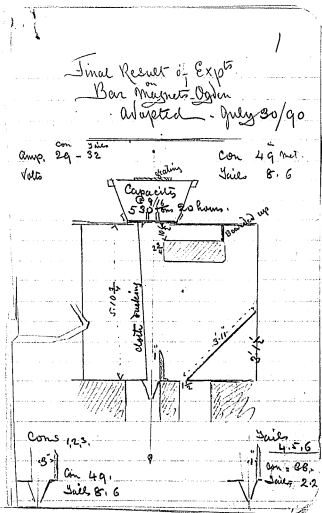 1
Final Result of Expts
on
Bar Magnets - Ogden
Adopted. July 30/90
Con Tails
Amp. 29 - 32
Volts
Con 49 Met.
Tails 8.6
Capacity
20 hours.
Boarded up
5.10 3/4
Cloth
3.1 1/2
3.1 1/2
Cons 1,2,3.
3"
Con 49.
Tails 8.6
Tails
4.5.6
1"
Con = 38.
Tails 2.2